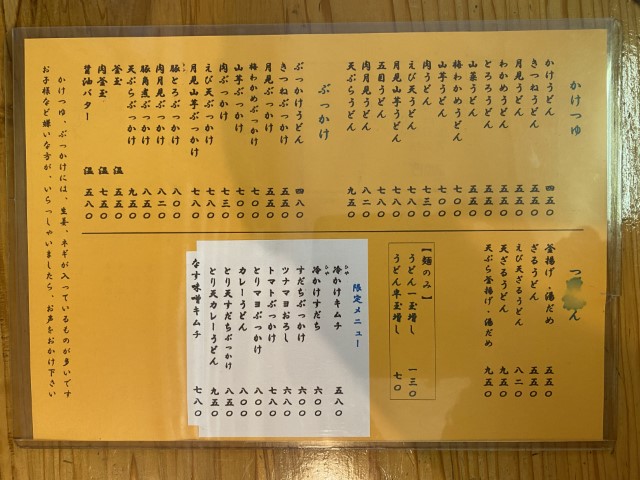 かけつゆ
かけうどん 四五〇
きつねうどん 五五〇
月見うどん 五五〇
わかめうどん 五五〇
とろろうどん 五五〇
山菜うどん 五五〇
梅わかめうどん 七〇〇
山芋うどん 七〇〇
肉うどん 七三〇
えび天うどん 七八〇
月見山芋うどん 七八〇
五目うどん 七八〇
肉月見うどん 八二〇
天ぷらうどん 九五〇
ぶっかけ
ぶっかけうどん 四八〇
きつねぶっかけ 五五〇
月見ぶっかけ 五五〇
梅わかめぶっかけ 七〇〇
山芋ぶっかけ 七〇〇
肉ぶっかけ 七三〇
えび天ぶっかけ 七八〇
月見山芋ぶっかけ 七八〇
豚とろぶっかけ 八〇〇
肉月見ぶっかけ 八二〇
豚角煮ぶっかけ 八五〇
天ぷらぶっかけ 九五〇
釜玉 温 五五〇
肉釜玉 温 七五〇
醤油バター 温 五八〇
つ
ん
釜揚げ・湯だめ 五五〇
ざるうどん 五五〇
えび天ざるうどん 八二〇
天ざるうどん 九五〇
天ぷら釜揚げ・湯だめ 九五〇
【麺のみ】
うどん一玉増し 一三〇
うどん半玉増し 七〇
限定メニュー
冷かけキムチ 五八〇
冷かけすだち 六〇〇
すだちぶっかけ 六〇〇
ツナマヨおろし 六八〇
トマトぶっかけ 七八〇
とりマヨぶっかけ 八〇〇
カレーうどん 八〇〇
とり天すだちぶっかけ 八五〇
とり天カレーうどん 九五〇
なす味噌キムチ 七八〇
かけつゆ・ぶっかけには、生姜、ネギが入っているものが多いです
お子様など嫌いな方が、いらっしゃいましたら、お声をおかけ下さい